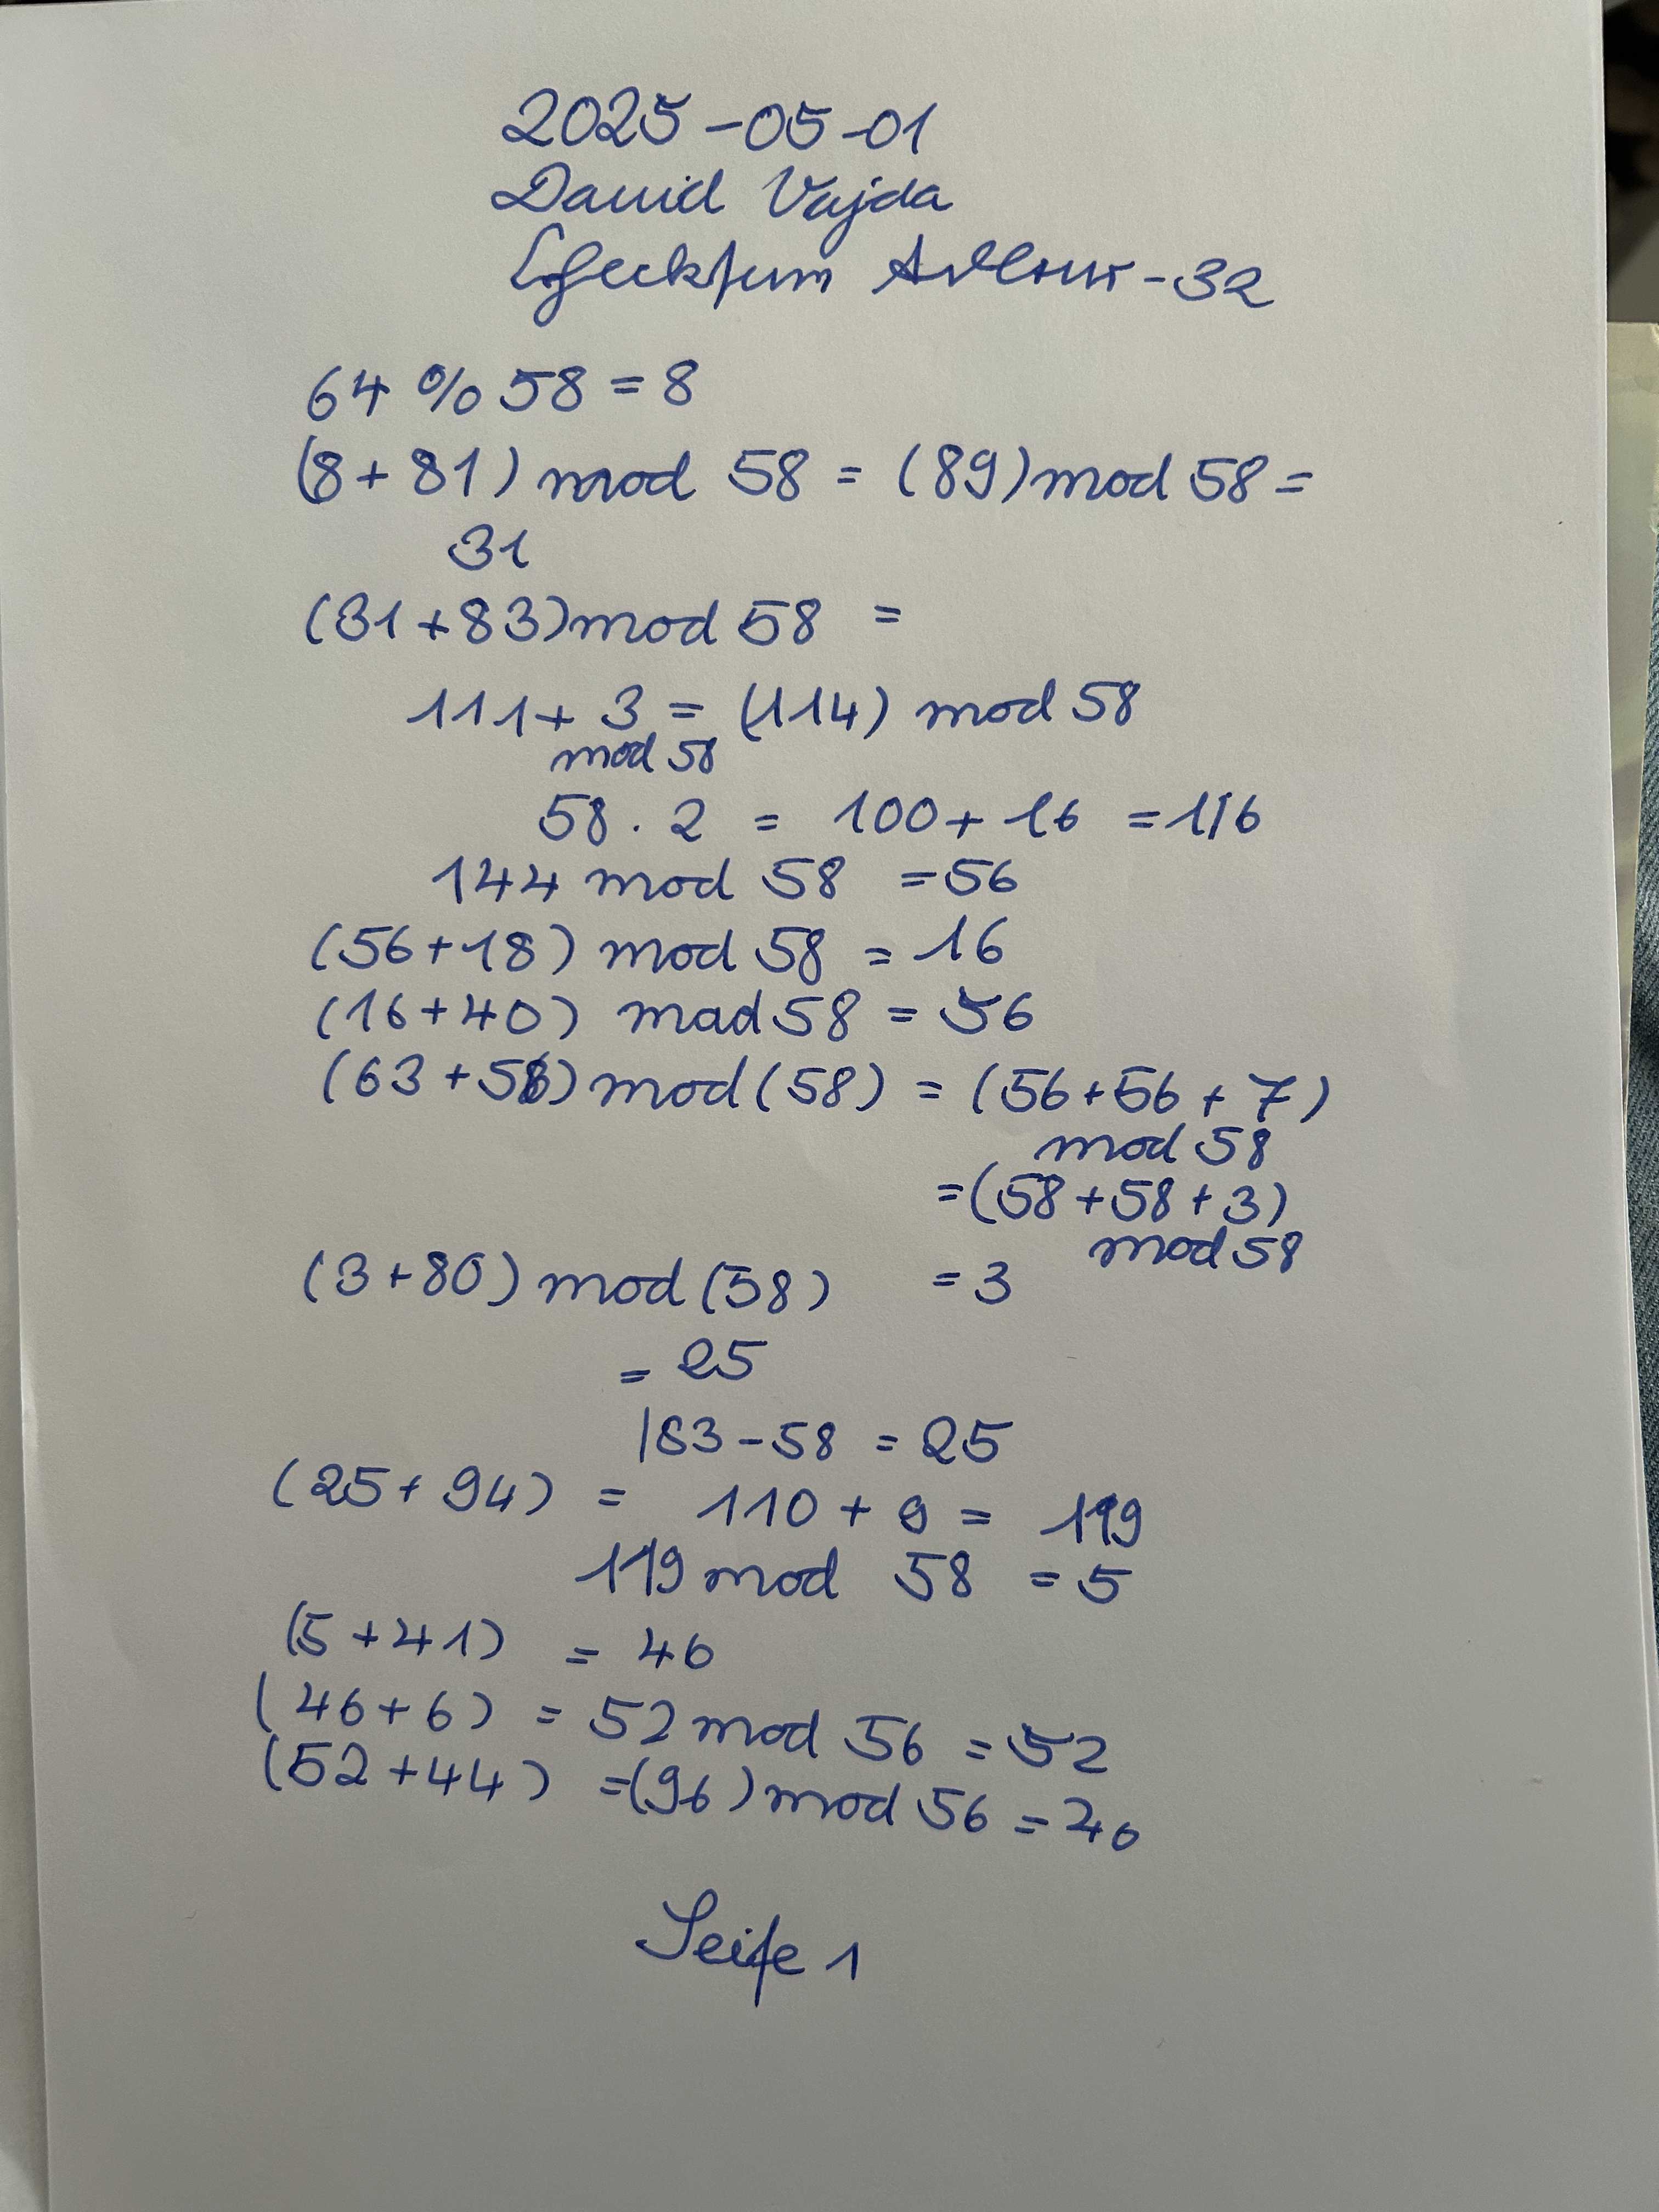 2025-05-01
David Vajda
Checksum Adler-32
64 % 58 = 8
(8 + 81) mod 58 = (89) mod 58 =
31
(31 + 83) mod 58 =
111 + 3 = (114) mod 58
mod 58
58 · 2 = 100 + 16 = 116
144 mod 58 = 56
(56 + 18) mod 58 = 16
(16 + 40) mod 58 = 56
(63 + 56) mod (58) = (56 + 56 + 7)
mod 58
= (58 + 58 + 3)
mod 58
(3 + 80) mod (58) = 3
= 25
|83 - 58 = 25
(25 + 94) = 110 + 9 = 119
119 mod 58 = 5
(5 + 41) = 46
(46 + 6) = 52 mod 56 = 52
(52 + 44) = (96) mod 56 = 40
Seite 1